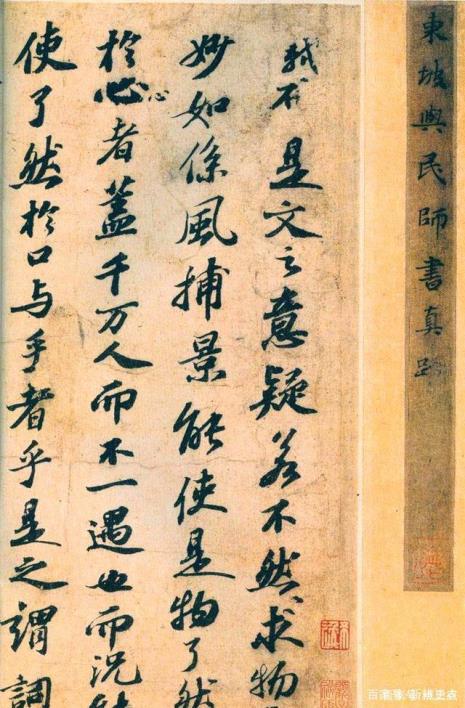 東坡與民師書真跡
是文之意疑若不然求物
妙如係風捕景能使是物了然
於心者蓋千万人而不一遇也而況
使了然於口与手者乎是之謂詞